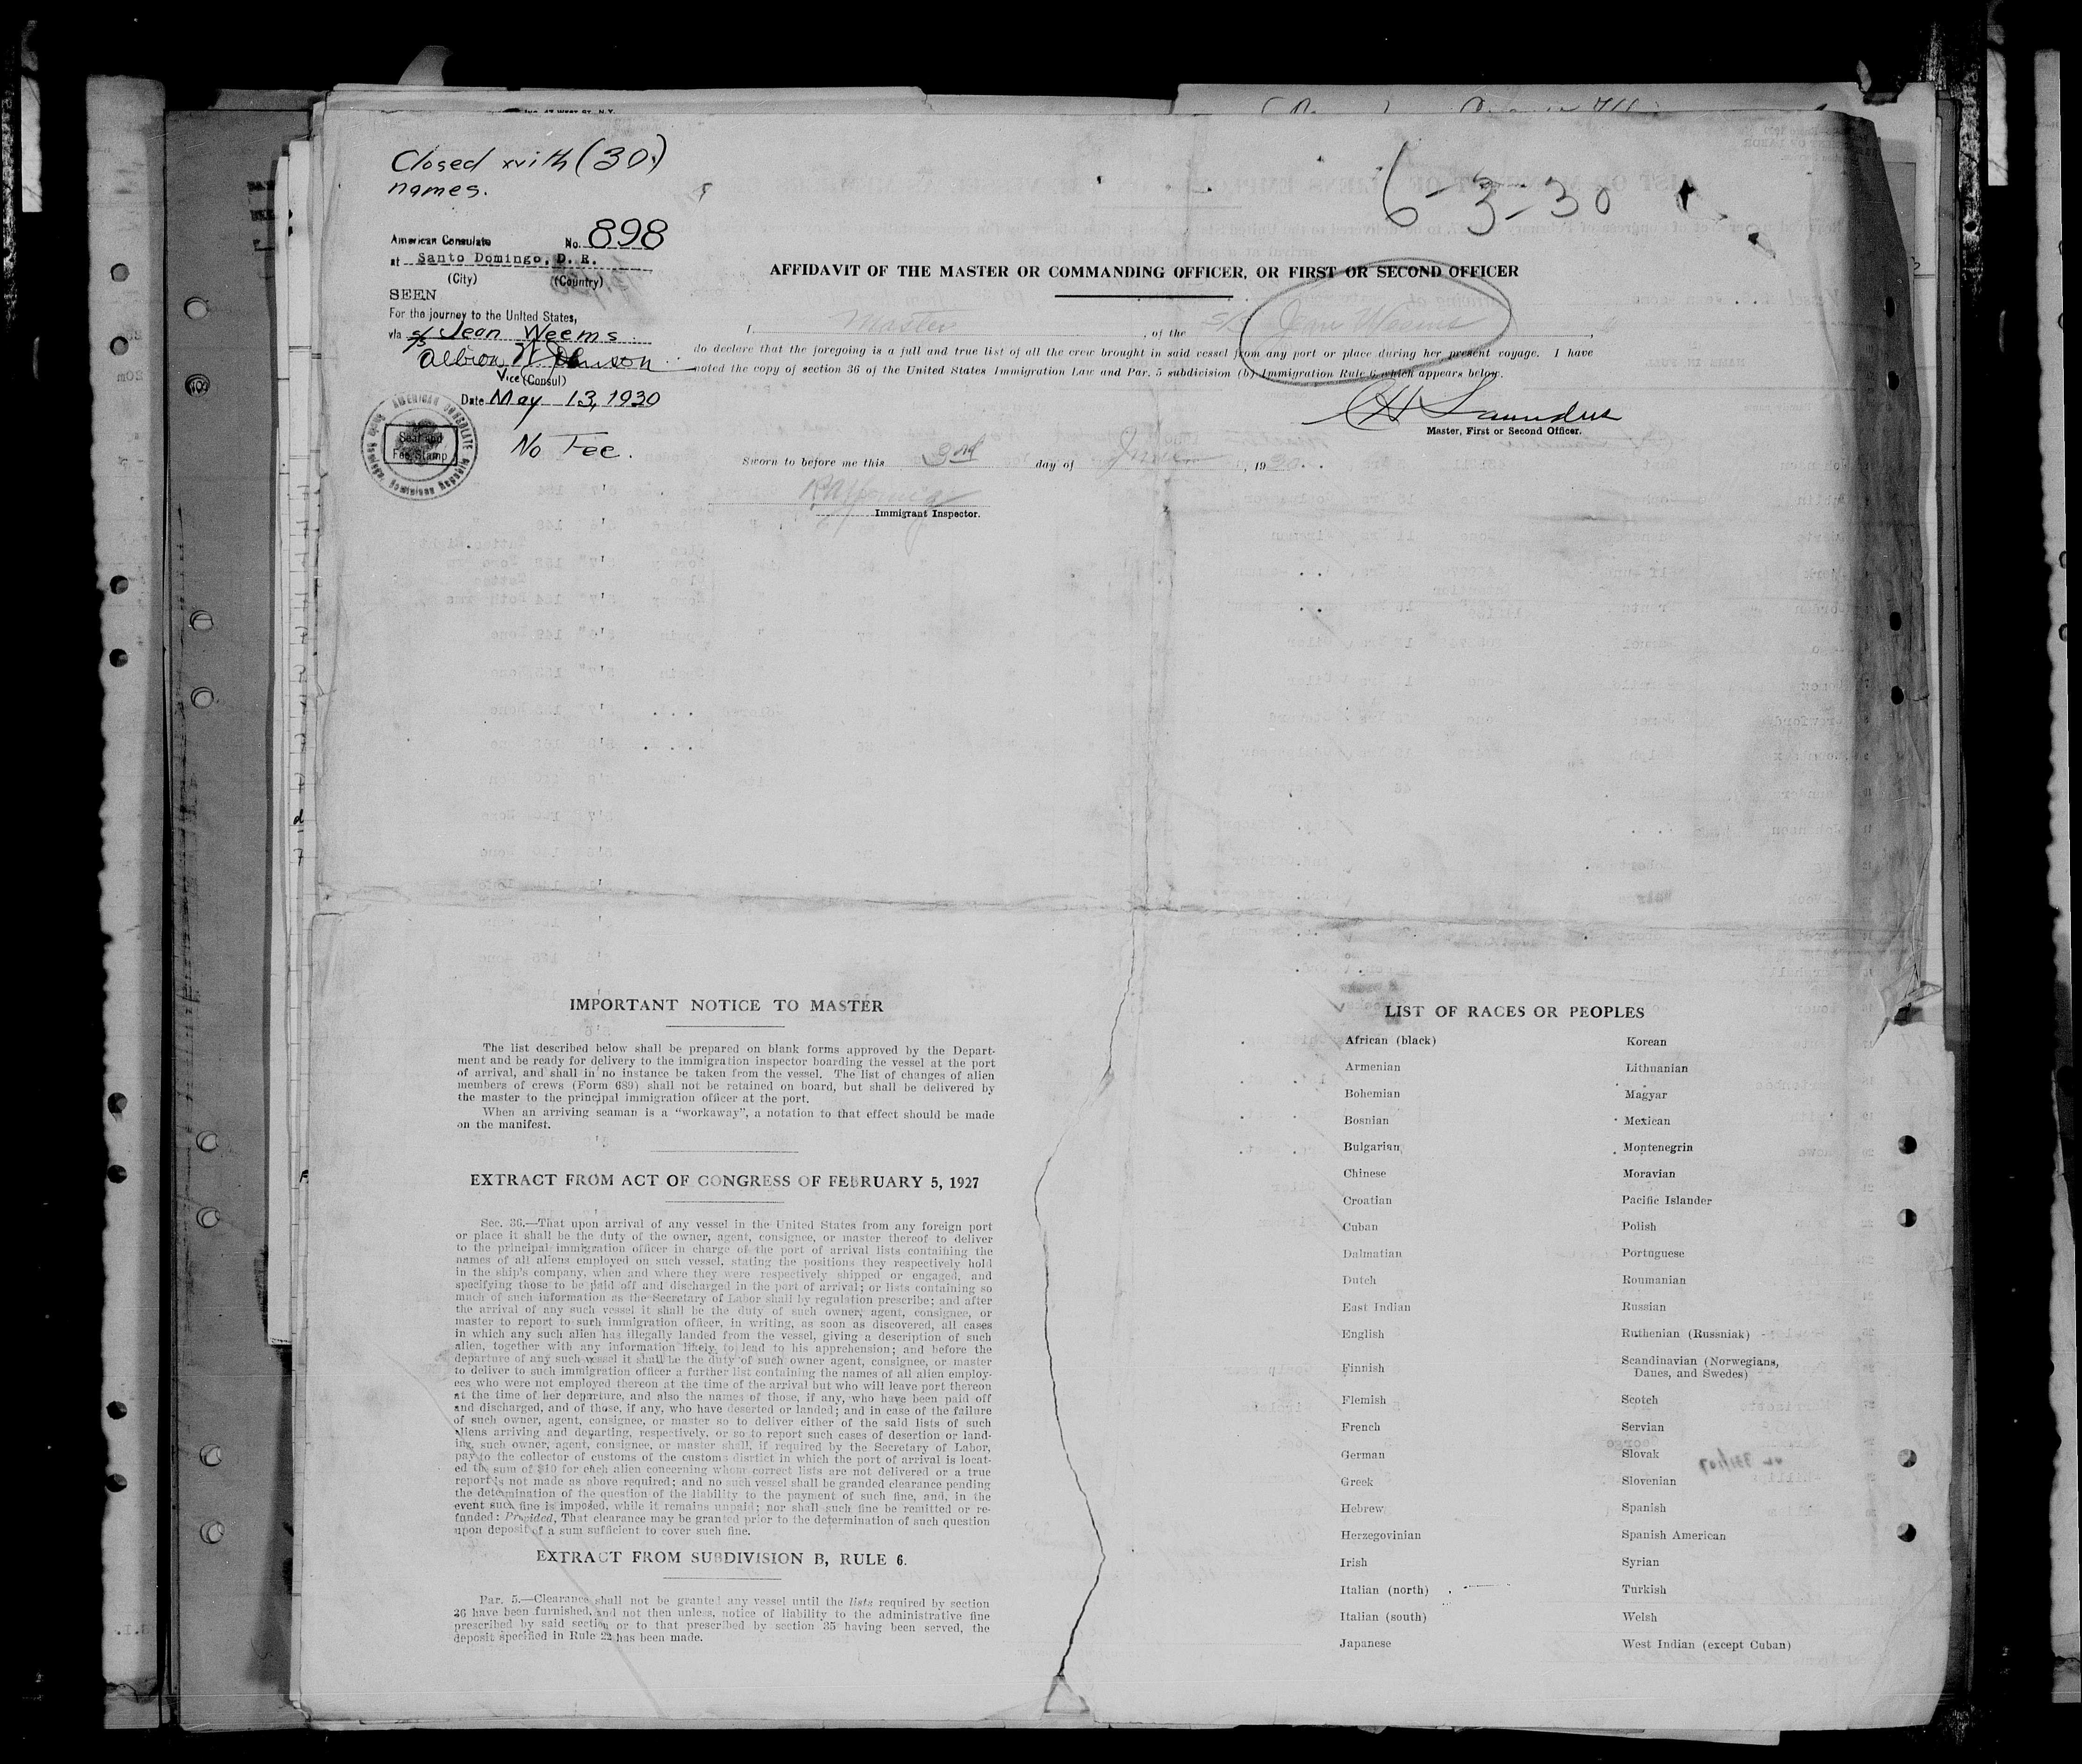 Closed with (30)
names.
6-3-30
American Consulate No. 898
at Santo Domingo, D. R.
(City) (Country)
SEEN
For the journey to the United States,
via S/S Jean Weems
Albion W Johnson
Vice (Consul)
Date May 13, 1930
AMERICAN CONSULATE
Seal and
Fee Stamp
No Fee.
AFFIDAVIT OF THE MASTER OR COMMANDING OFFICER, OR FIRST OR SECOND OFFICER
I, Master, of the S/S Jean Weems,
do declare that the foregoing is a full and true list of all the crew brought in said vessel from any port or place during her present voyage. I have
noted the copy of section 36 of the United States Immigration Law and Par. 5 subdivision (b) Immigration Rule 6 which appears below.
CH Saunders
Master, First or Second Officer.
Sworn to before me this 3rd day of June, 1930.
Immigrant Inspector.
IMPORTANT NOTICE TO MASTER
The list described below shall be prepared on blank forms approved by the Depart-
ment and be ready for delivery to the immigration inspector boarding the vessel at the port
of arrival, and shall in no instance be taken from the vessel. The list of changes of alien
members of crews (Form 689) shall not be retained on board, but shall be delivered by
the master to the principal immigration officer at the port.
When an arriving seaman is a “workaway”, a notation to that effect should be made
on the manifest.
EXTRACT FROM ACT OF CONGRESS OF FEBRUARY 5, 1927
Sec. 36.—That upon arrival of any vessel in the United States from any foreign port
or place it shall be the duty of the owner, agent, consignee, or master thereof to deliver
to the principal immigration officer in charge of the port of arrival lists containing the
names of all aliens employed on such vessel, stating the positions they respectively hold
in the ship's company, when and where they were respectively shipped or engaged, and
specifying those to be paid off and discharged in the port of arrival; or lists containing so
much of such information as the Secretary of Labor shall by regulation prescribe; and after
the arrival of any such vessel it shall be the duty of such owner, agent, consignee, or
master to report to such immigration officer, in writing, as soon as discovered, all cases
in which any such alien has illegally landed from the vessel, giving a description of such
alien, together with any information likely to lead to his apprehension; and before the
departure of any such vessel it shall be the duty of such owner agent, consignee, or master
to deliver to such immigration officer a further list containing the names of all alien employ-
ees who were not employed thereon at the time of the arrival but who will leave port thereon
at the time of her departure, and also the names of those, if any, who have been paid off
and discharged, and of those, if any, who have deserted or landed; and in case of the failure
of such owner, agent, consignee, or master so to deliver either of the said lists of such
aliens arriving and departing, respectively, or so to report such cases of desertion or land-
ing, such owner, agent, consignee, or master shall, if required by the Secretary of Labor,
pay to the collector of customs of the customs disrtict in which the port of arrival is locat-
ed the sum of $10 for each alien concerning whom correct lists are not delivered or a true
report is not made as above required; and no such vessel shall be granded clearance pending
the determination of the question of the liability to the payment of such fine, and, in the
event such fine is imposed, while it remains unpaid; nor shall such fine be remitted or re-
funded: Provided, That clearance may be granted prior to the determination of such question
upon deposit of a sum sufficient to cover such fine.
EXTRACT FROM SUBDIVISION B, RULE 6.
Par. 5.—Clearance shall not be granted any vessel until the lists required by section
36 have been furnished, and not then unless, notice of liability to the administrative fine
prescribed by said section or to that prescribed by section 35 having been served, the
deposit specified in Rule 22 has been made.
LIST OF RACES OR PEOPLES
African (black)
Armenian
Bohemian
Bosnian
Bulgarian
Chinese
Croatian
Cuban
Dalmatian
Dutch
East Indian
English
Finnish
Flemish
French
German
Greek
Hebrew
Herzegovinian
Irish
Italian (north)
Italian (south)
Japanese
Korean
Lithuanian
Magyar
Mexican
Montenegrin
Moravian
Pacific Islander
Polish
Portuguese
Roumanian
Russian
Ruthenian (Russniak)
Scandinavian (Norwegians,
Danes, and Swedes)
Scotch
Servian
Slovak
Slovenian
Spanish
Spanish American
Syrian
Turkish
Welsh
West Indian (except Cuban)